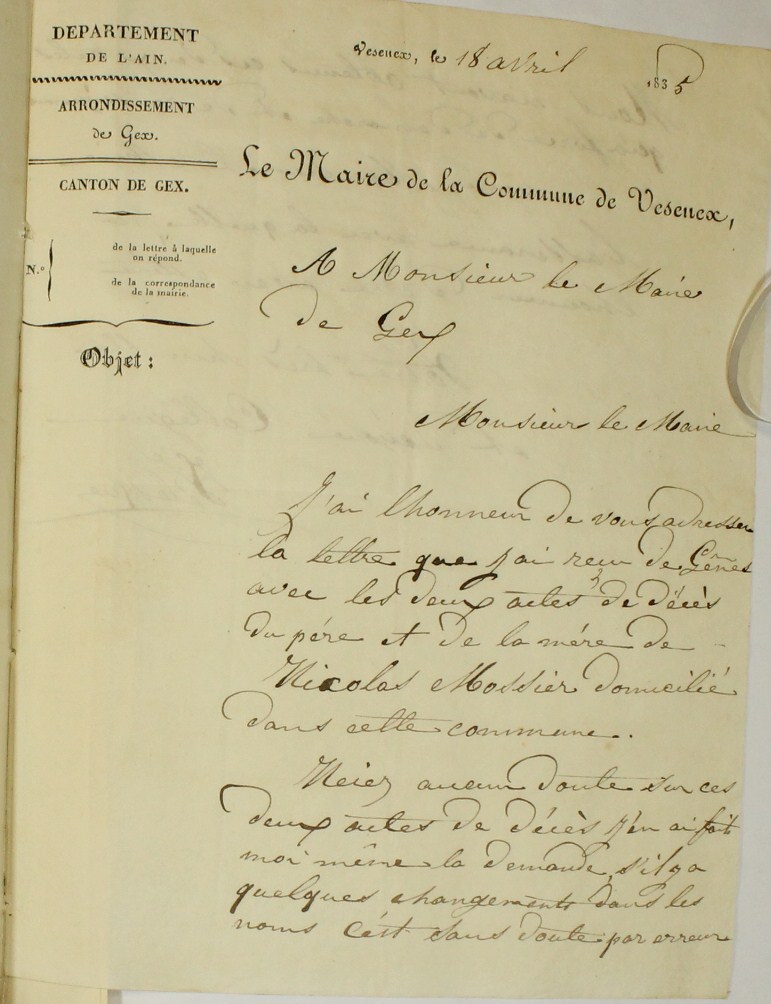 DEPARTEMENT
DE L'AIN.
ARRONDISSEMENT
de Gex.
CANTON DE GEX.
N.º
de la lettre à laquelle
on répond.
de la correspondance
de la mairie.
Objet :
Vesenex, le 18 avril 1835
Le Maire de la Commune de Vesenex,
A Monsieur le Maire
de Gex
Monsieur le Maire
J'ai lhonneur de vous adresser
la lettre que j'ai recu de Gênes
avec les deux actes de décès
du pére et de la mére de
Nicolas Mossier domicilié
dans cette commune.
Neiez aucun doute sur ces
deux actes de décès j'en ai fait
moi même la demande, s'il y a
quelques changements dans les
noms c'est sans doute par erreur